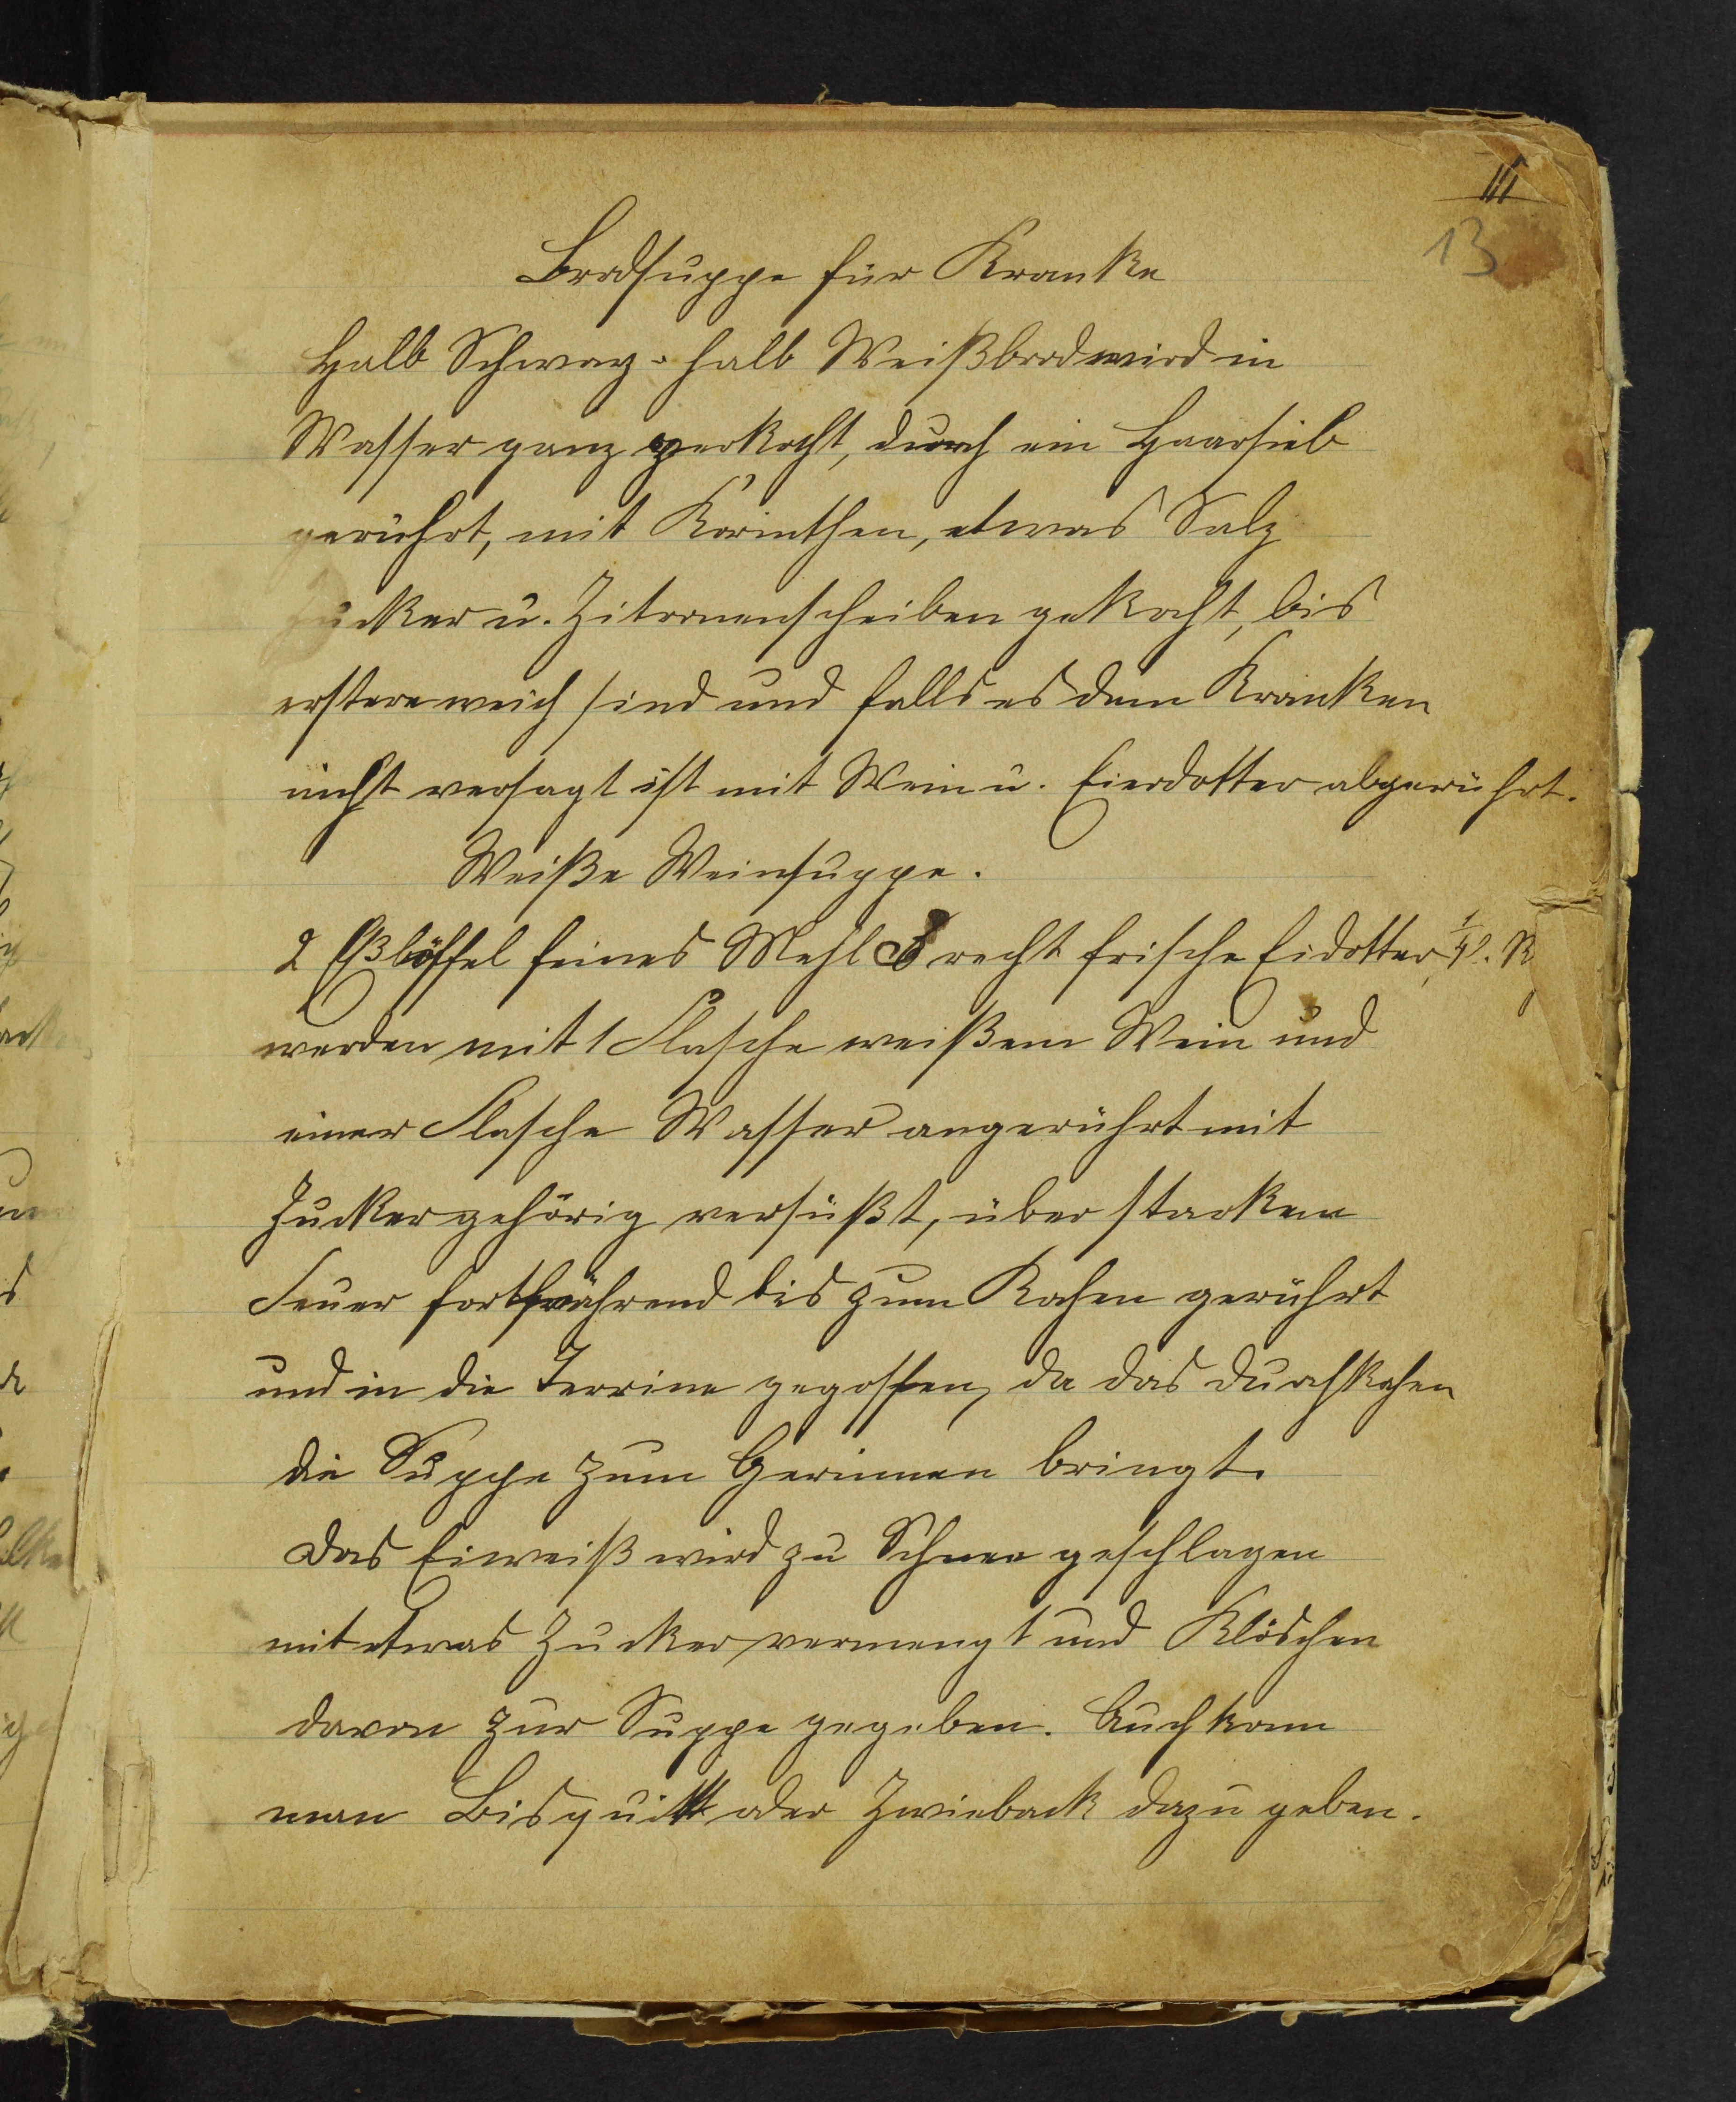 III
13
Brodsuppe für Kranke
Halb Schwarz- halb Weißbrod wird in
Wasser ganz zerkocht, durch ein Haarsieb
gerührt, mit Korinthen, etwas Salz
Zucker u. Zitronenscheiben gekocht, bis
erstere weich sind und falls es dem Kranken
nicht versagt ist mit Wein u. Eierdotter abgerührt.
Weiße Weinsuppe.
2 Eßlöffel feines Mehl 8 recht frische Eidotter, 1/4 l. R
werden mit 1 Flasche weißem Wein und
einer Flasche Wasser angerührt mit
Zucker gehörig versüßt, über starkem
Feuer fortwährend bis zum Kochen gerührt
und in die Terrine gegossen, da das Durchkochen
die Suppe zum Gerinnen bringt.
Das Eiweiß wird zu Schnee geschlagen
mit etwas Zucker vermengt und Klöschen
davon zur Suppe gegeben. Auch kann
man Bisquitt oder Zwieback dazu geben.